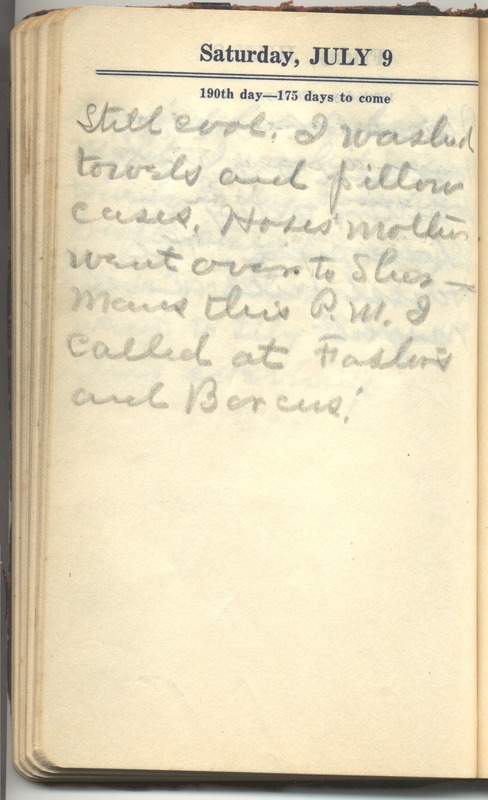 Saturday, JULY 9
190th day—175 days to come
Still cool. I washed
towels and pillow
cases. Hoses mother
went over to Sher-
mans this P.M. I
called at
and Barcus'